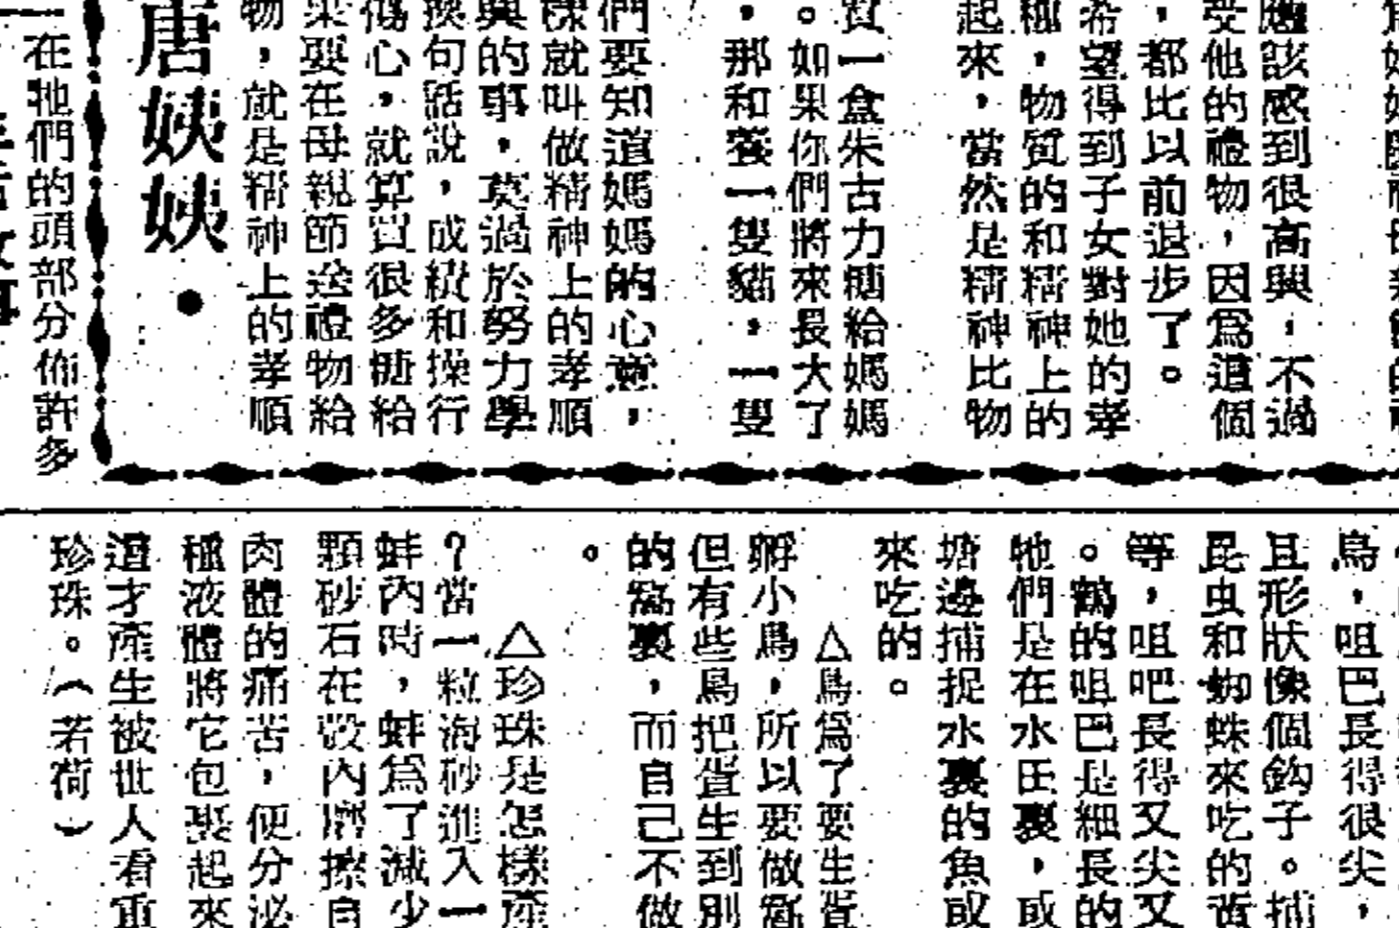 應該感到很高興，不過
受他的禮物，因爲這個
，都比以前退步了。
希望得到子女對她的孝
種，物質的和精神上的
起來，當然是精神比物
買一盒朱古力糖給媽媽
。如果你們將來長大了
，那和養一隻貓，一隻
們要知道媽媽的心意，
樣就叫做精神上的孝順
興的事，莫過於努力學
換句話說，成績和操行
傷心，就算買很多糖給
果要在母親節送禮物給
物，就是精神上的孝順
唐姨姨●
一在牠們的頭部分佈許多
鳥，咀巴長得很尖，
且形狀像個鈎子。捕
昆虫和蜘蛛來吃的
等，咀吧長得又尖又
。鶴的咀巴是細長的
牠們是在水田裏，或
塘邊捕捉水裏的魚或
來吃的。
△鳥爲了要生蛋
孵小鳥，所以要做窩
但有些鳥把蛋生到別
的窩裏，而自己不做
。
△珍珠是怎樣產
？當一粒海砂進入一
蚌內時，蚌爲了減少
顆砂石在殼內磨擦自
肉體的痛苦，便分泌
種液體將它包裹起來
這才產生被世人看重
珍珠。（若荷）